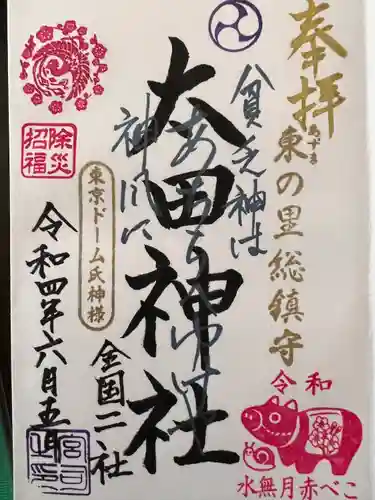 奉拝
東の里総鎮守
あづま
貧乏神は
太田神社
神川に
東京ドーム氏神様
全国二社
令和四年六月五日
除災
招福
宮司
之印
令和
水無月赤べこ